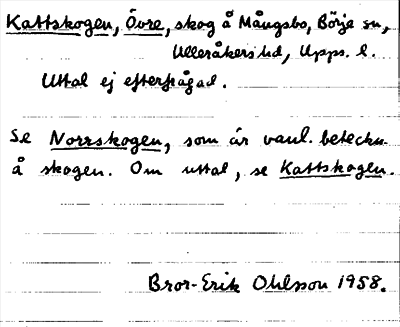 Kattskogen, Övre, skog å Mångsbo, Börje sn,
Ulleråkers hd, Upps. l.
Uttal ej efterfrågad.
Se Norrskogen, som är vanl. beteckn.
å skogen. Om uttal, se Kattskogen.
Bror-Erik Ohlsson 1958.